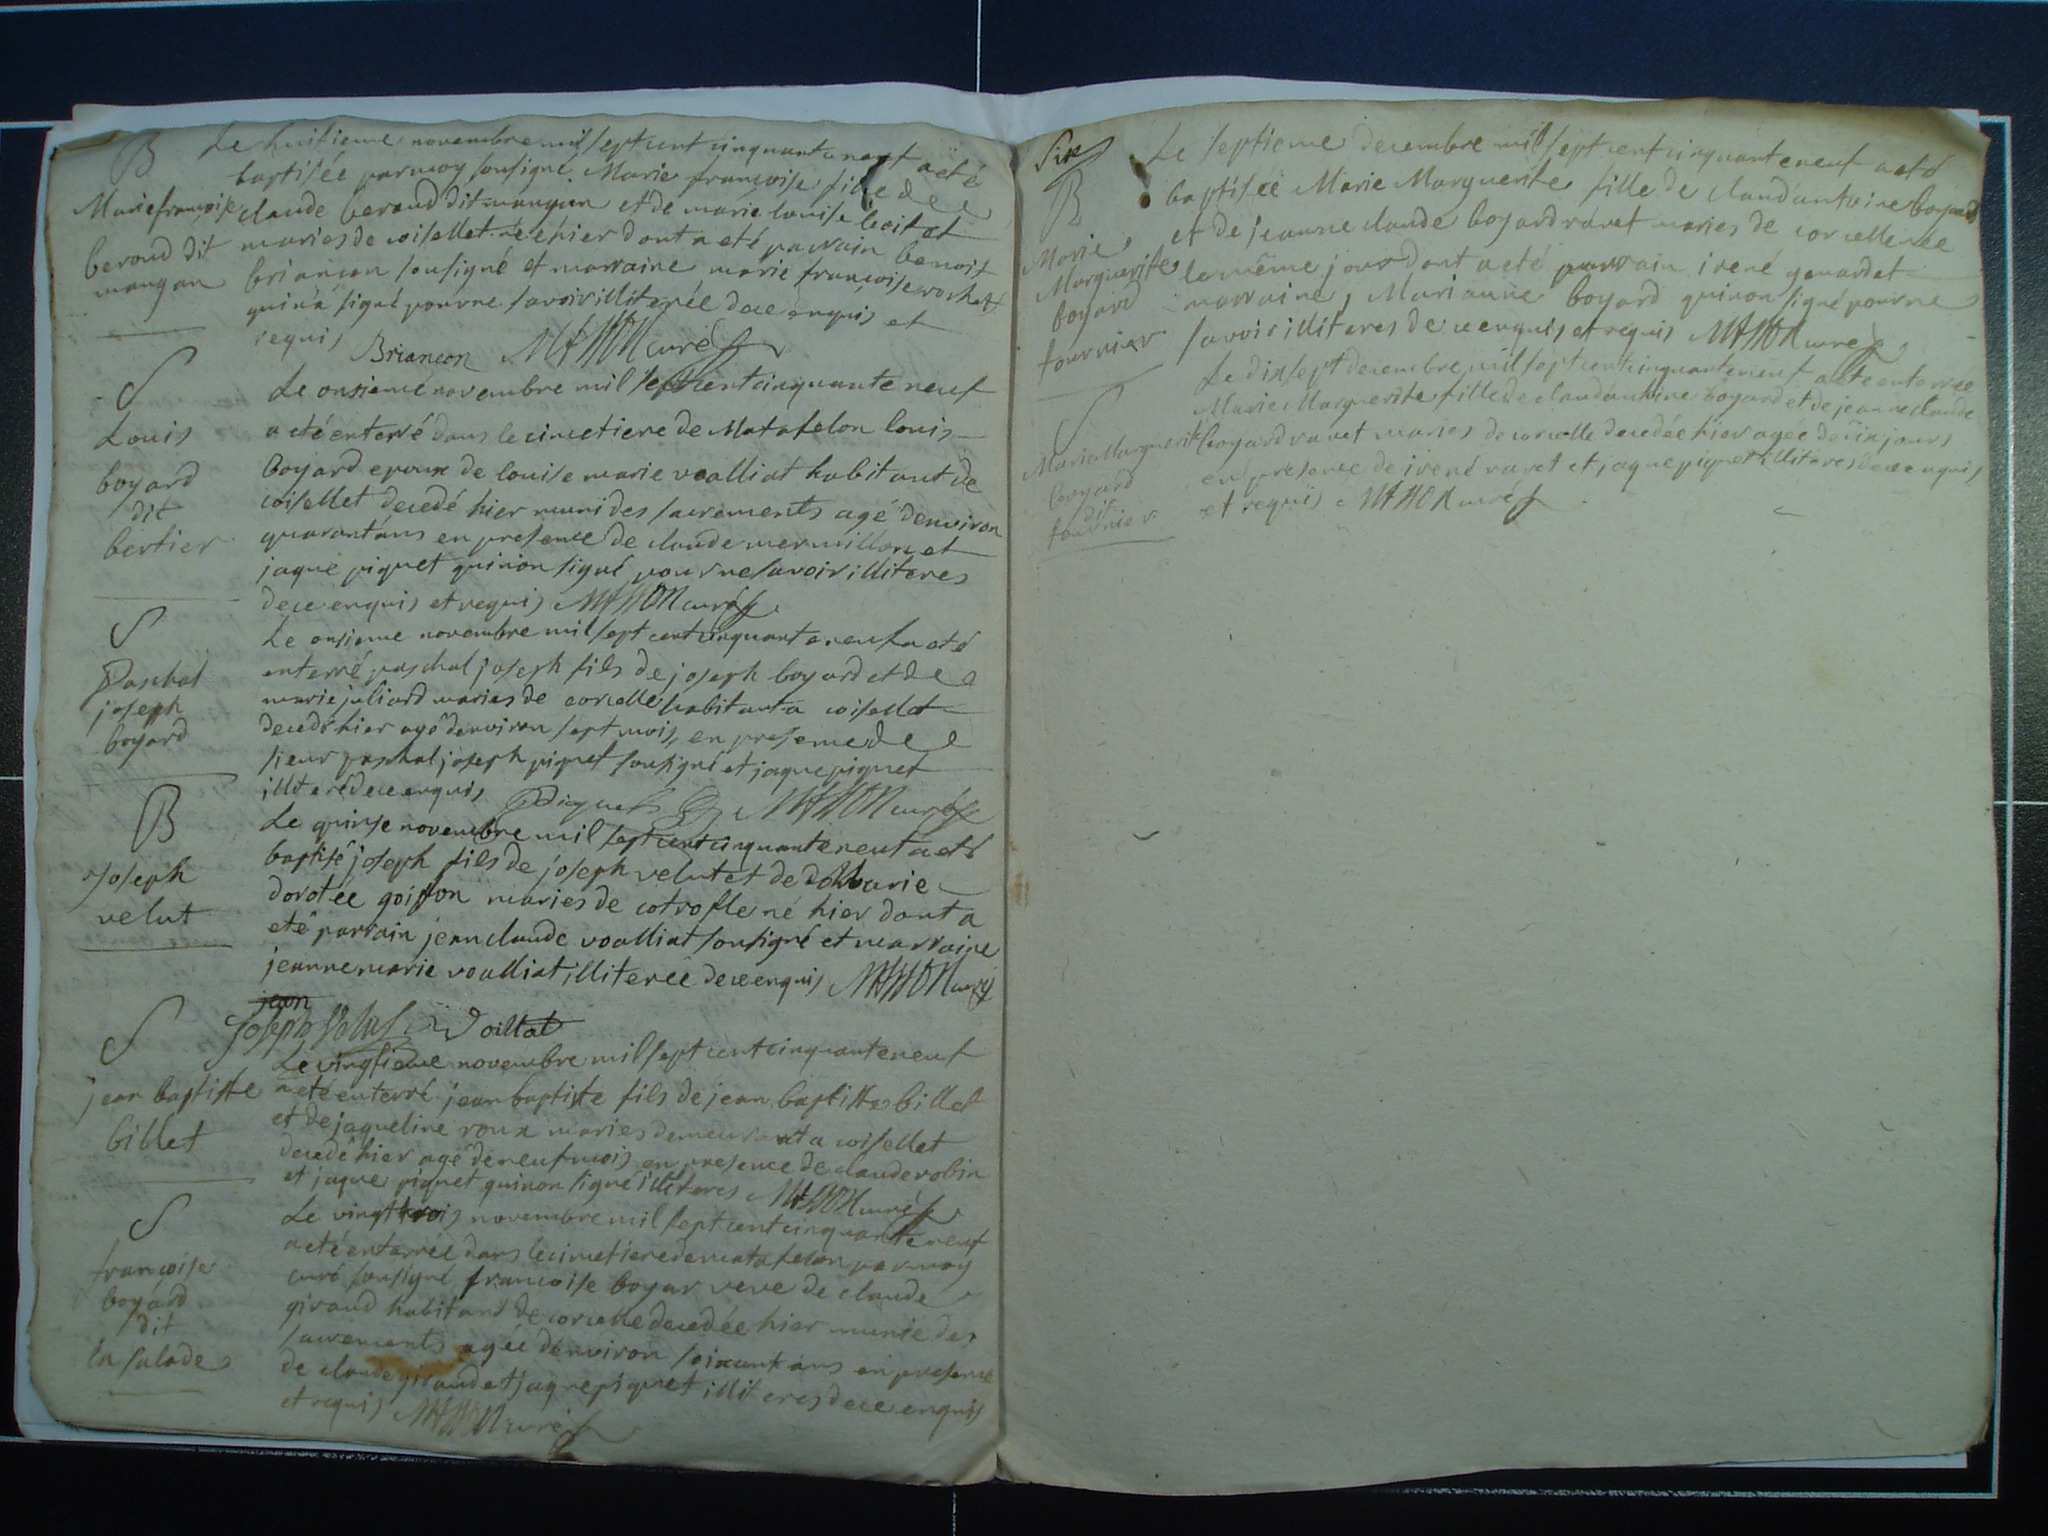 B
Marie francoise
beroud dit
mangan
Le huitieme novembre mil sept cent cinquante neuf a eté
baptisée par moy sousigné Marie francoise fille de
claude beroud dit mangan et de marie louise
maries de coisellet née hier dont a eté parrain benoit
briancon sousigné et marraine marie francoise
qui n'a signé pour ne savoir illiterée de ce enquis et
requis Briancon MASSON curé
S
Louis
boyard
dit
bertier
Le onsieme novembre mil sept cent cinquante neuf
a eté enterré dans le cimetiere de Matafelon louis
boyard epoux de louise marie voalliat habitant de
coisellet decedé hier muni des sacrements agé d'environ
quarant'ans en presence de claude mermillon et
jaque piquet qui non signé pour ne savoir illiteres
de ce enquis et requis MASSON curé
S
Paschal
joseph
boyard
Le onsieme novembre mil sept cent cinquante neuf a eté
enterré paschal joseph fils de joseph boyard et de
marie juliard maries de corcelle habitant a coisellet
decedé hier agé d'environ sept mois, en presence de
sieur paschal joseph piquet sousigné et jaque piquet
illiteré de ce enquis Piquet MASSON curé
B
Joseph
velut
Le quinse novembre mil sept cent cinquante neuf a eté
baptisé joseph fils de joseph velut et de Marie
dorotée goiffon maries de cotrofle né hier dont a
eté parrain jean claude voalliat sousigné et marraine
jeanne marie voalliat illiterée de ce enquis MASSON curé
jean
Joseph Velut Voillat
S
jean baptiste
billet
Le vingtieme novembre mil sept cent cinquante neuf
a eté enterré jean baptiste fils de jean baptiste billet
et de jaqueline roux maries demeurant a coisellet
decedé hier agé de neuf mois en presence de claude robin
et jaque piquet qui non signé illiteres MASSON curé
S
francoise
boyard
dit
la salade
Le vingt trois novembre mil sept cent cinquante neuf
a eté enterrée dans le cimetiere de matafelon par moy
curé sousigné francoise boyar veve de claude
giraud habitans de corcelle decedée hier munie des
sacrements agée d'environ soixant'ans en presence
de claude giraud et jaque piquet illiteres de ce enquis
et requis MASSON curé
Six
B
Marie
Marguerite
boyard
fournier
Le septieme decembre mil sept cent cinquante neuf a eté
baptisée Marie Marguerite fille de claud'antoine boyard
et de jeanne claude boyard ravet maries de corcelle née
le même jour dont a eté parrain irené genardet
marraine, Marianne boyard qui non signé pour ne
savoir illiteres de ce enquis et requis MASSON curé
S
Marie Marguerite
boyard
dit
fournier
Le dix sept decembre mil sept cent cinquante neuf a eté enterrée
Marie Marguerite fille de claud'antoine boyard et de jeanne claude
boyard ravet maries de corcelle decedée hier agée de dix jours
en presence de irené ravet et jaque piquet illiteres de ce enquis
et requis MASSON curé